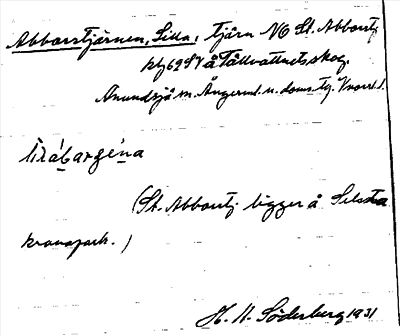 Abborrtjärnen, Lilla, tjärn NO St. Abborrtj.
på Tällvattnets skog.
Anundsjö sn. Ångerml. n. doms. tg. Vnorrl. l.
(St. Abborrtj. ligger å Selsta
kronopark.)
H. N. Söderberg 1931